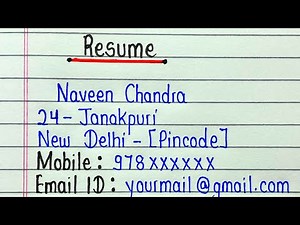 Resume
Naveen Chandra
24 - Janakpuri
New Delhi - [Pincode]
Mobile : 978xxxxxx
Email ID : yourmail@gmail.com